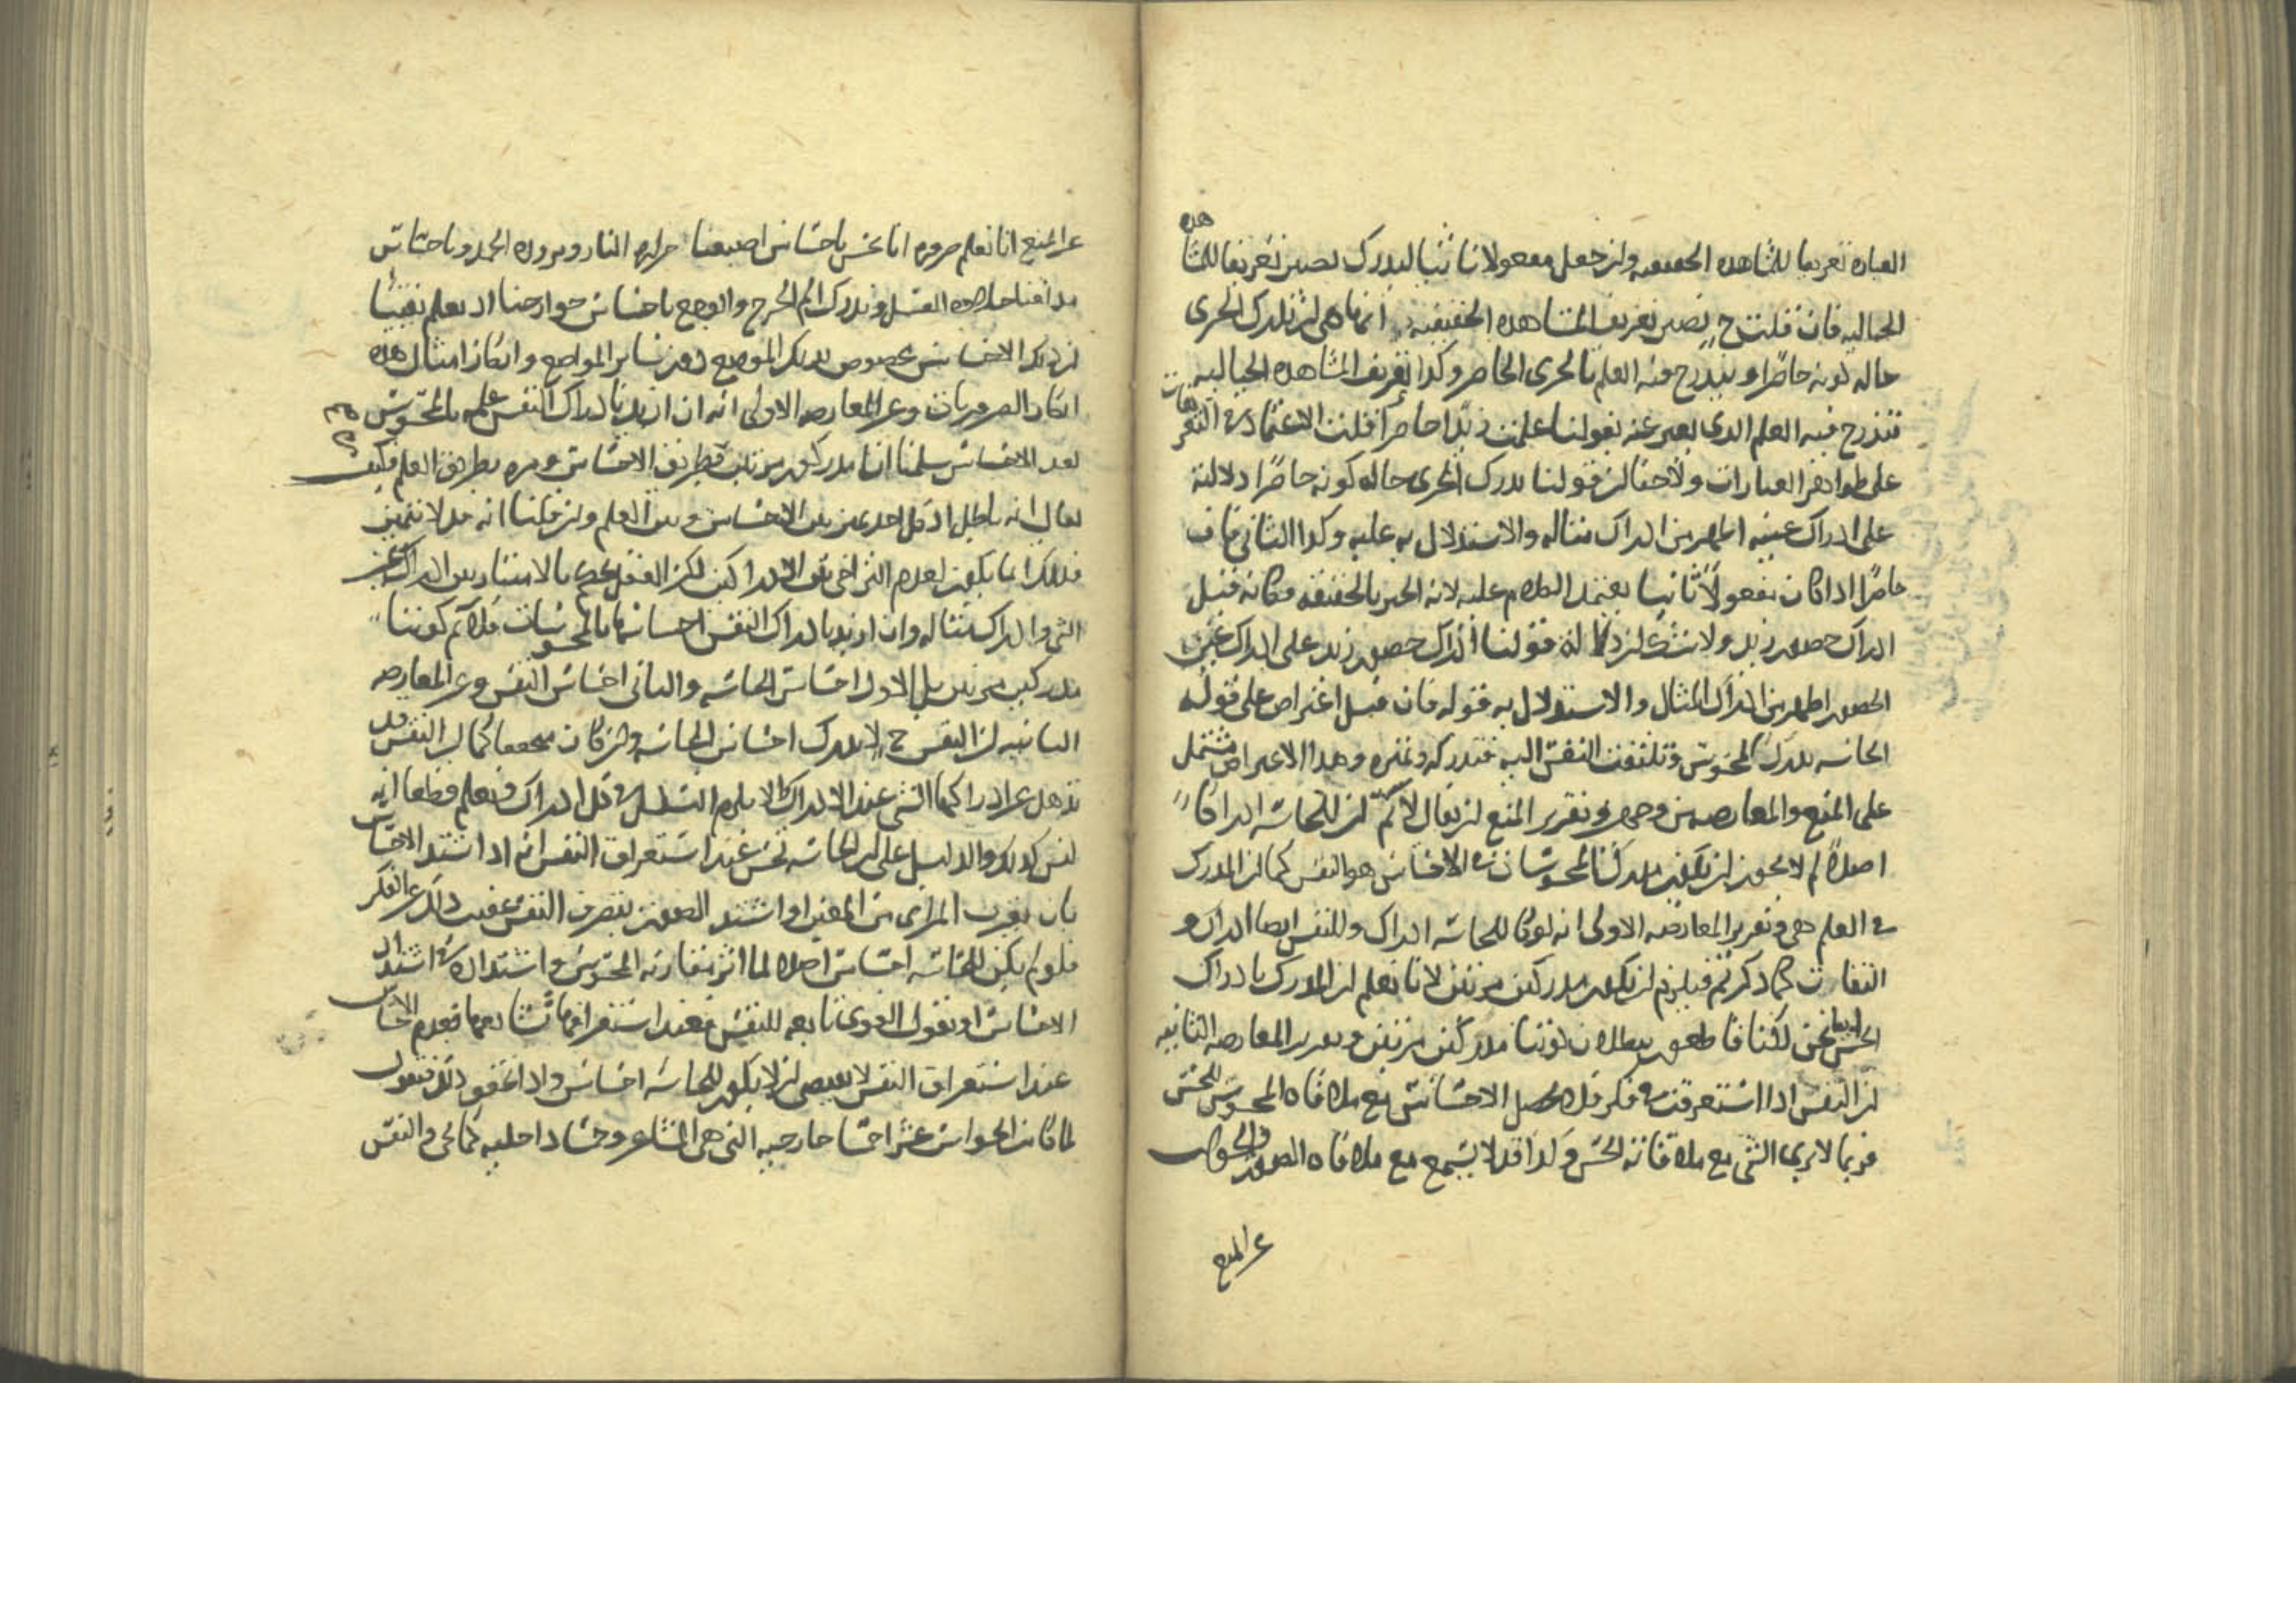 العبارة تعريفا للمشاهده الحقيقيه وان جعل مفعولا ثانيا ليدرك يصير تعريفا للمشاهده
الخياليه فان قلت ح يصير تعريف المشاهده الحقيقيه انها هي ان تدرك الجزى
حاله كونه حاضرا ويندرج فيه العلم بالجزى الحاضر وكذا تعريف المشاهده الخياليه
تندرج فيه العلم الذى يعبر عنه بقولنا علمت زيدا حاضرا قلت الاعتماد فى التعريفات
على ظواهر العبارات ولاخفا ان قولنا يدرك الجزى حاله كونه حاضرا دلالته
على ادراك عينه اظهر من ادراك مثاله والاستدلال به عليه وكذا الثانى فان
حاضرا اذا كان مفعولا ثانيا يعتمد الكلام عليه لانه الخبر بالحقيقه فكانه قيل
ادراك حضور زيد ولا شك ان دلاله قولنا ادراك حضور زيد على ادراك عين
الحضور اظهر من ادراك المثال والاستدلال به قوله فان قيل اعتراض على قوله
الحاسه تدرك المحسوس وتلتفت النفس اليه فتدركه وتميزه وهذا الاعتراض مشتمل
على المنع والمعارضه من وجهين وتقرير المنع ان يقال لانم ان للحاسه ادراكا
اصلا لم لا يجوز ان يكون مدرك المحسوسات فى الاحساس هو النفس كما ان المدرك
فى العلم هى وتقرير المعارضه الاولى انه لو كان للحاسه ادراك وللنفس ايضا ادراك و
التفات كما ذكرتم فيلزم ان نكون مدركين مرتين لانا نعلم ان المدرك بادراك
الحس ايضا نحن لكنا قاطعون ببطلان كوننا مدركين مرتين وتقرير المعارضه الثانيه
ان النفس اذا استغرقت فى فكر فلا يحصل الاحساس مع ملاقاه المحسوس للحس
فربما لا يرى الشى مع ملاقاته الحس وكذا قد لا يسمع مع ملاقاه الصوت والجواب
عن المنع
عن المنع انا نعلم ضروره انا نحس باحساس اصبعنا حراره النار وبروده الجمد وباحساس
مذاقنا حلاوه العسل وندرك الم الجرح والوجع باحساس جوارحنا اذ نعلم يقينا
ان ذلك الاحساس مخصوص بذلك الموضع دون سائر المواضع وانكار امثال هذه
انكار الضروريات وعن المعارضه الاولى انه ان اريد بادراك النفس علمه بالمحسوس
بعد الاحساس سلمنا انا مدركون مرتين مره بطريق الاحساس ومره بطريق العلم فكيف
يقال انه باطل اذ كل احد يميز بين الاحساس وبين العلم وان قلنا انه قد لا يتميز
فذلك انما يكون لعدم التراخى بين الادراكين لكن العقل يحكم بالامتياز بين ادراك عين
الشى وادراك مثاله وان اريد بادراك النفس احساسها بالمحسوسات فلا نم كوننا
مدركين مرتين بل الاول احساس الحاسه والثانى احساس النفس وعن المعارضه
الثانيه ان النفس ح لا تدرك احساس الحاسه وان كان متحققا كما ان النفس قد
تذهل عن ادراكها الشى عند الادراك والا يلزم التسلسل فى كل ادراك ونعلم قطعا انه
ليس كذلك والدليل على ان الحاسه تحس عند استغراق النفس انه اذا اشتد الاحساس
بان يقرب المرئى من العين او اشتد الصوت ينصرف النفس عقيب ذلك عن الفكر
فلو لم يكن للحاسه احساس اصلا لما اثر مقارنه المحسوس واشتداده فى اشتداد
الاحساس او نقول القوى تابعه للنفس فعند استغراقها تشايعها فعدم الاحساس
عند استغراق النفس لا يقتضى ان لا يكون للحاسه احساس واذا عرفت ذلك فنقول
لما كانت الحواس عشرا خمسا خارجيه التى هى المشاعر وخمسا داخليه كما هى والنفس